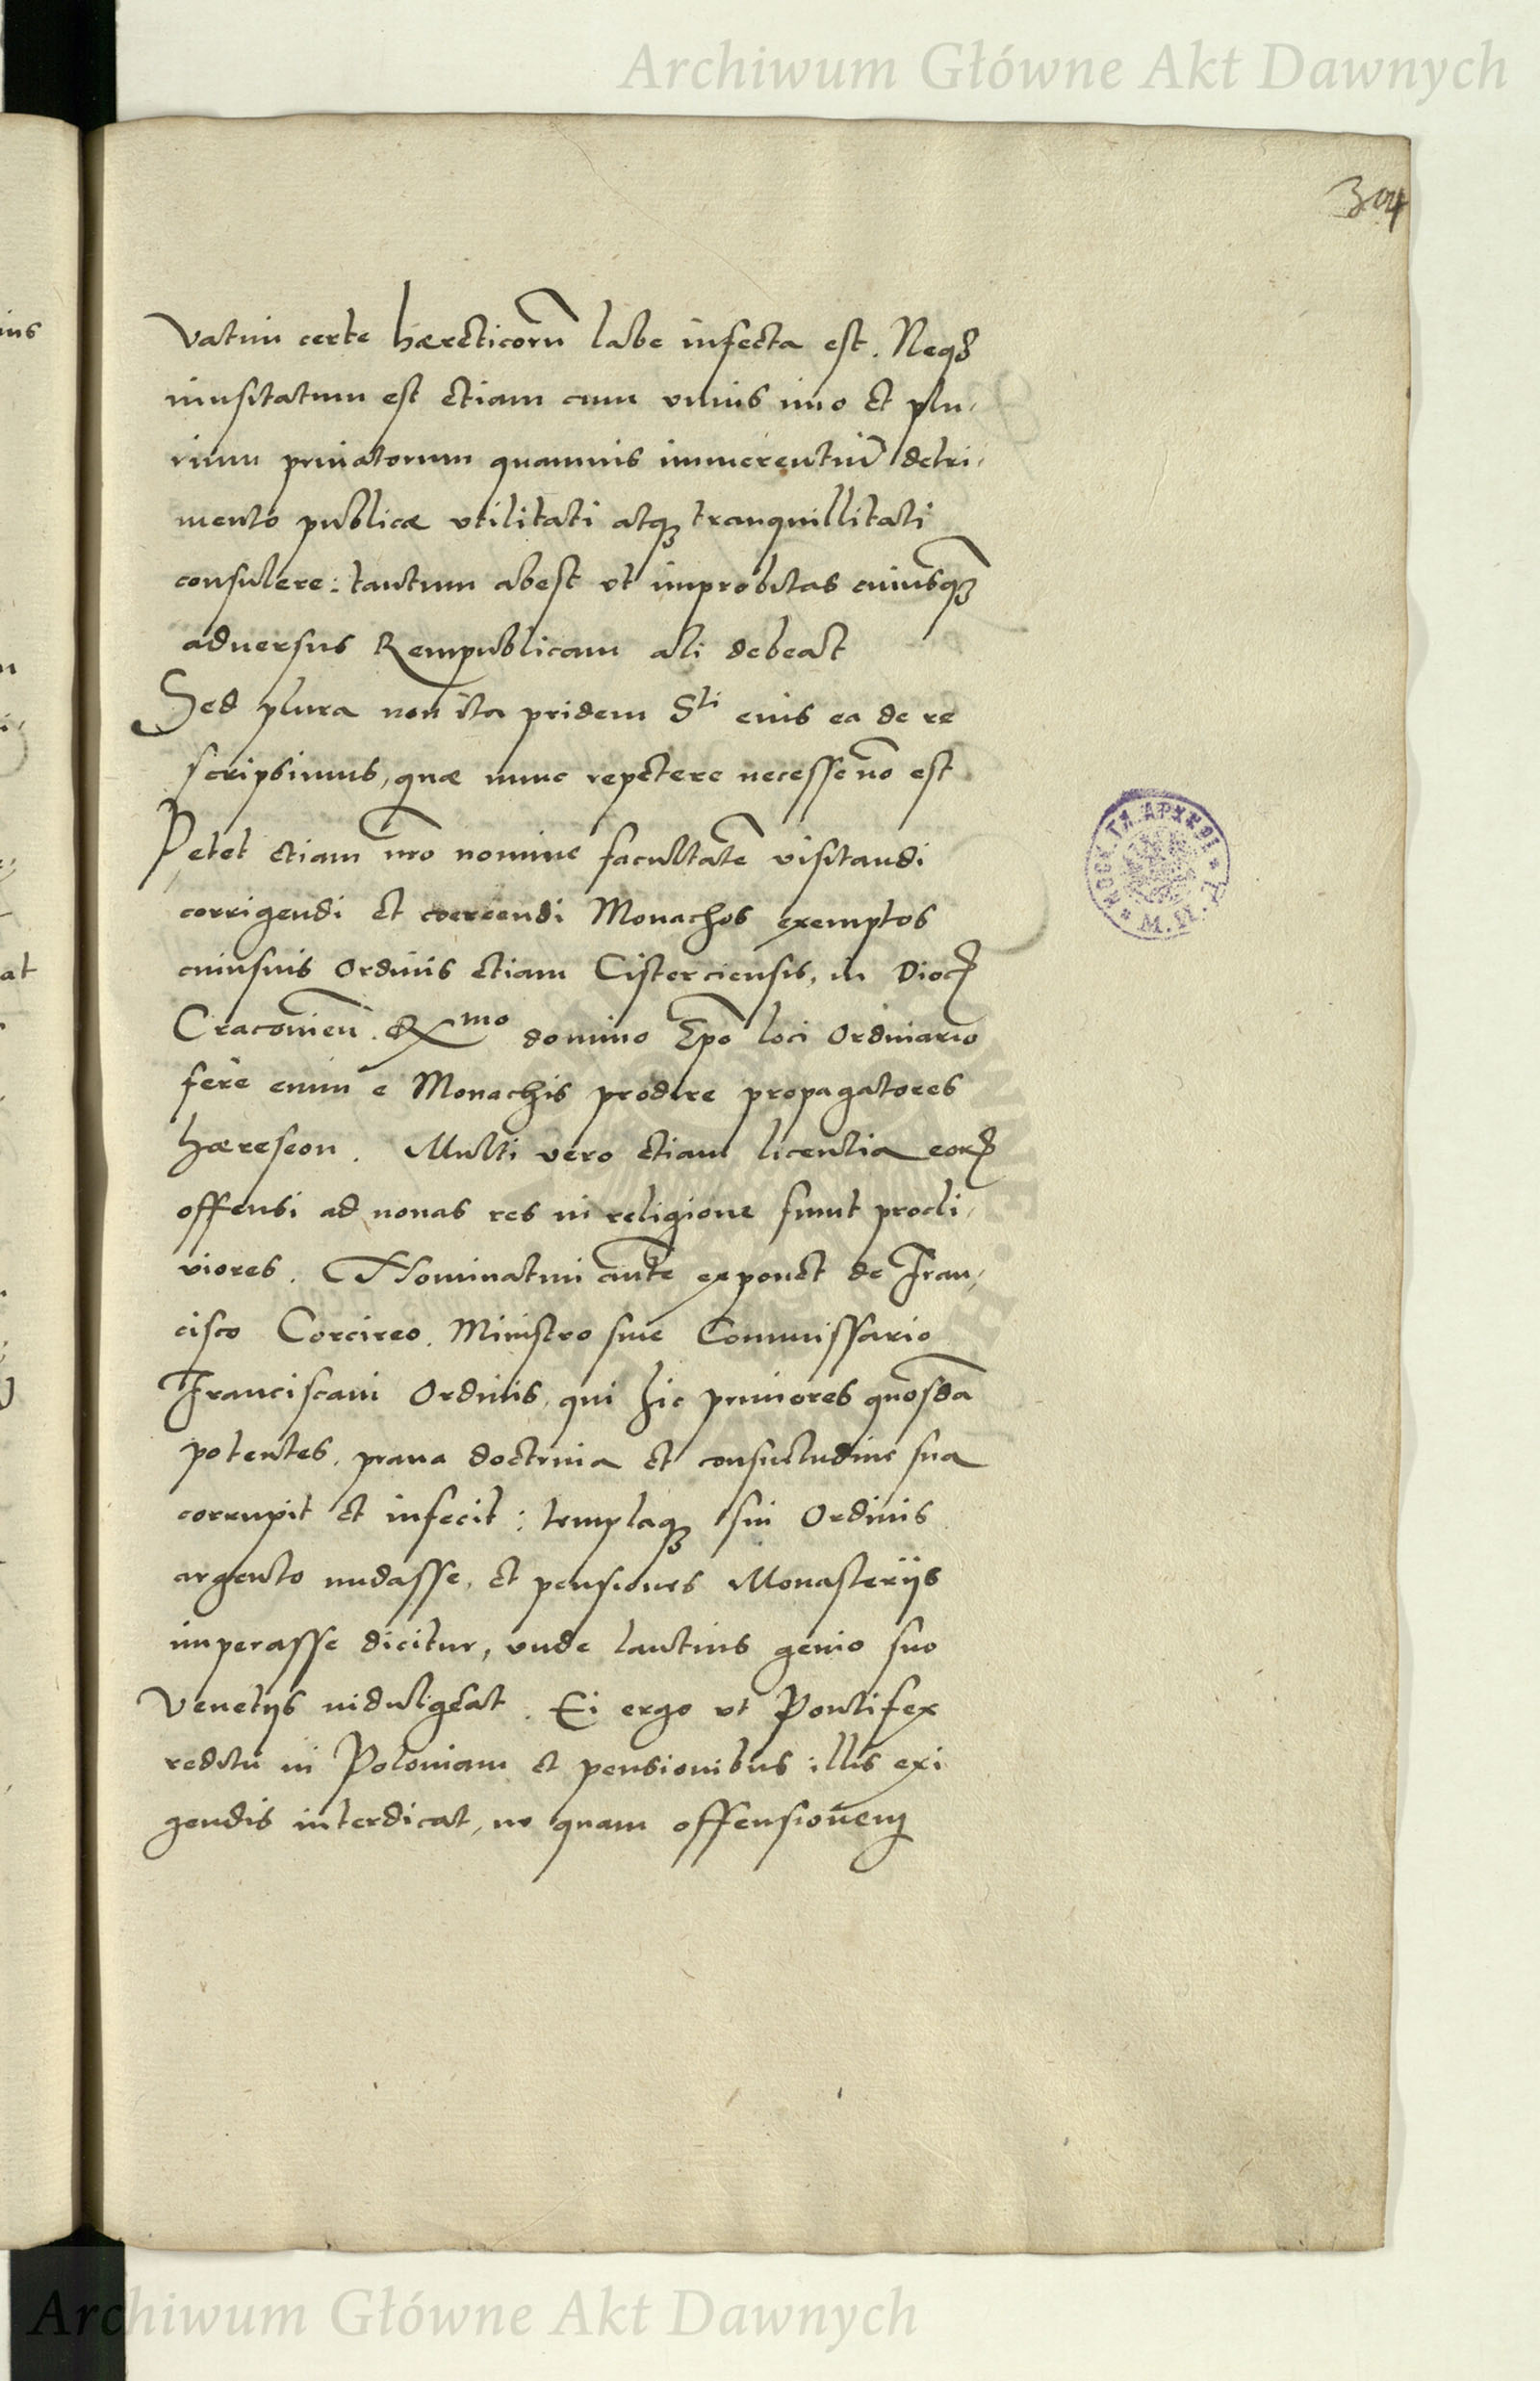 Archiwum Główne Akt Dawnych
304
vatim certe hæreticorũ labe infecta est. Neqȝ
inusitatum est etiam cum unius imo et plu-
rium privatorum quamvis immerentiũ detri-
mento publicæ utilitati atqȝ tranquillitati
consulere: tantum abest ut improbitas cuiusqȝ
adversus Rempublicam ali debeat
Sed plura non ita pridem Sti eius ea de re
scripsimus, quæ nunc repetere necesse nõ est
Petet etiam nr̃o nomine facultatẽ visitandi
corrigendi et coercendi Monachos exemptos
cuiusvis Ordinis etiam Cisterciensis, in Dioc
Cracovieñ. Rmo domino Ep̃o loci Ordinario
fere enim e Monachis prodire propagatores
hæreseon. Multi vero etiam licentia eorꝝ
offensi ad novas res in religione sunt procli-
viores. Nominatim aũte exponet de Fran-
cisco Corcireo. Ministro sive Commissario
Franciscani Ordinis, qui hic primores quosdã
potentes, prava doctrina et consuetudine sua
corrupit et infecit: templaqȝ sui Ordinis
argento nudasse, et pensiones Monasterijs
imperasse dicitur, unde lautius genio suo
Venetijs indulgeat. Ei ergo ut Pontifex
reditu in Poloniam et pensionibus illis exi
gendis interdicat, ne quam offensionem
ius
at
МОСК. ГЛ. АРХИВЪ
М. И. Д.
Archiwum Główne Akt Dawnych